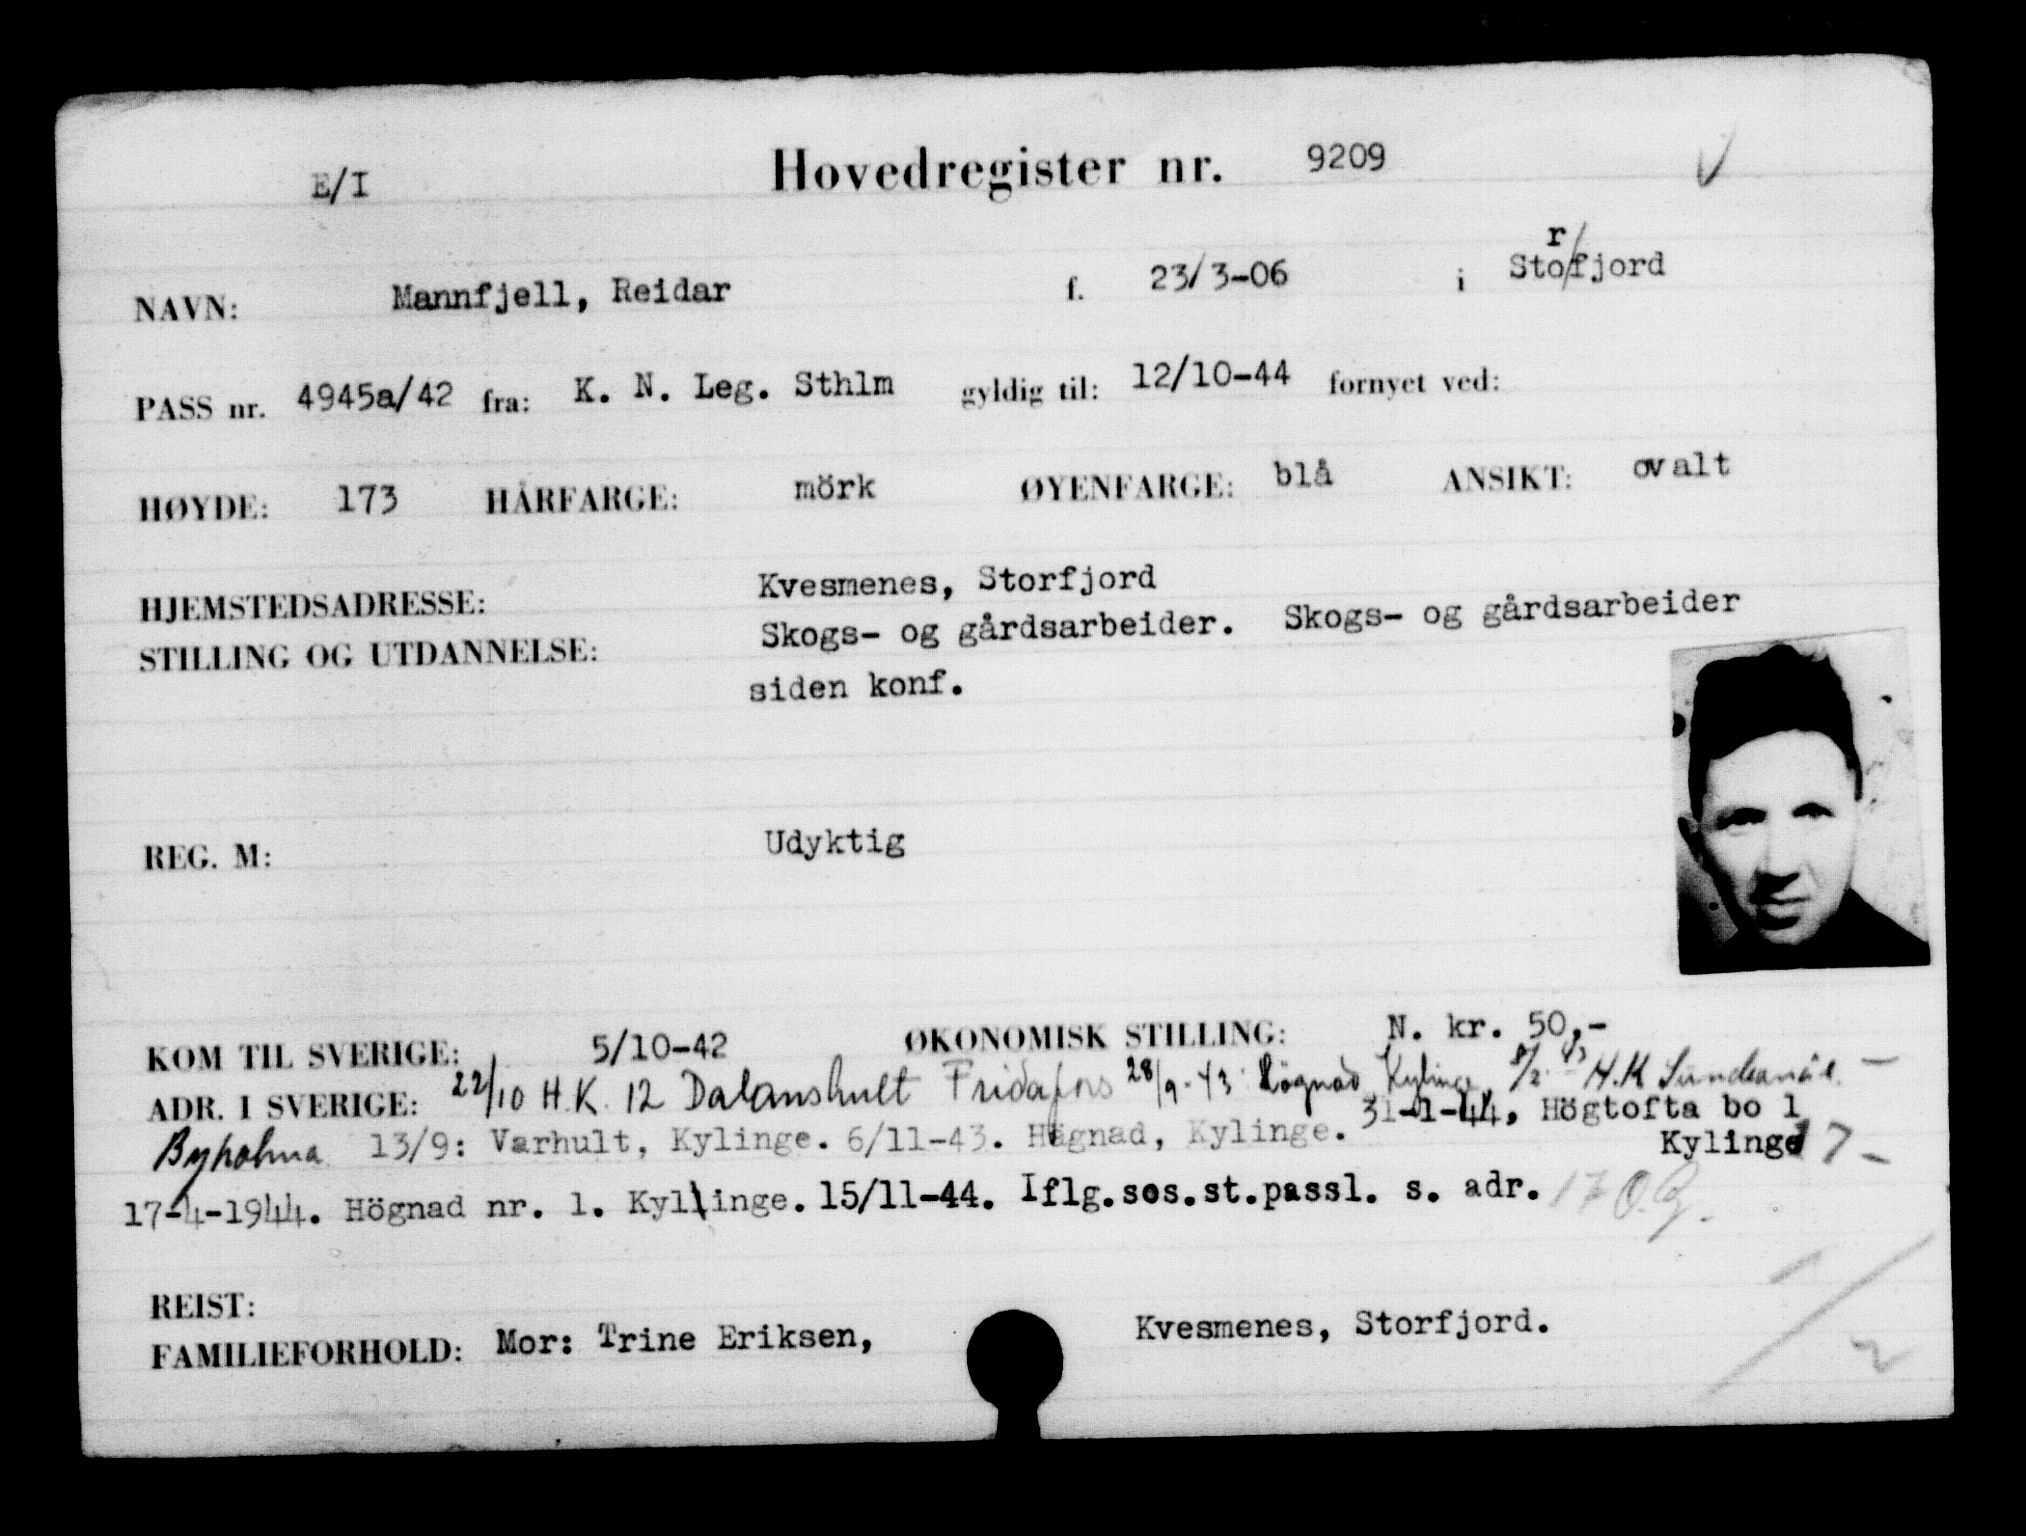 E/I Hovedregister nr. 9209
r/
NAVN: Mannfjell, Reidar f. 23/3-06 i Stofjord
PASS nr. 4945a/42 fra: K. N. Leg. Sthlm gyldig til: 12/10-44 fornyet ved:
HØYDE: 173 HÅRFARGE: mörk ØYENFARGE: blå ANSIKT: ovalt
HJEMSTEDSADRESSE: Kvesmenes, Storfjord
STILLING OG UTDANNELSE: Skogs- og gårdsarbeider. Skogs- og gårdsarbeider
siden konf.
REG. M: Udyktig
KOM TIL SVERIGE: 5/10-42 ØKONOMISK STILLING: N. kr. 50,-
ADR. I SVERIGE: 22/10 H.K. 12 Dalanshult Fridafors 28/9-43 Högnad, Kylinge 8/2-43 H.K
31-1-44, Högtofta bo 1
Byholma 13/9: Varhult, Kylinge. 6/11-43. Hägnad, Kylinge. Kylinge 17-
17-4-1944. Högnad nr. 1. Kyllinge. 15/11-44. Iflg.sos.st.passl. s. adr. 17
REIST:
FAMILIEFORHOLD: Mor: Trine Eriksen, Kvesmenes, Storfjord.